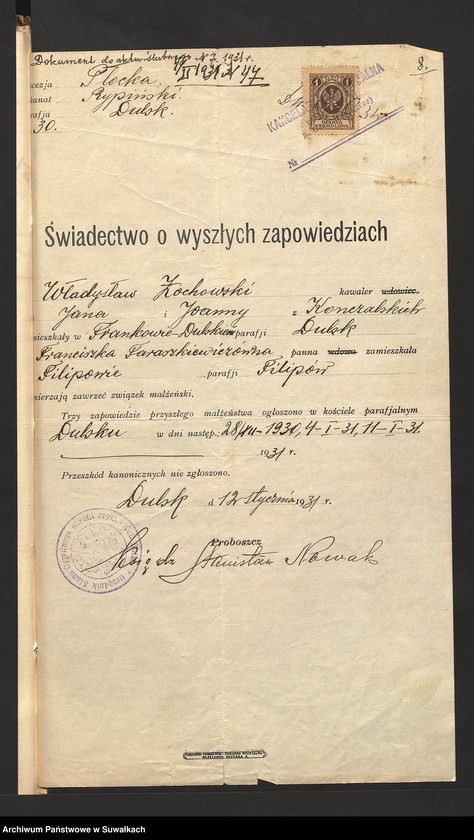 Dokument do aktu ślubnego N 7. 1931 r.
II 1931 N 47
8.
ecezja Płocka.
kanat Rypiński.
rafja Dulsk.
30.
1 1
OPŁATA
STEMPLOWA
№
Świadectwo o wyszłych zapowiedziach
Władysław Żochowski kawaler wdowiec
Jana i Joanny z Konczalskich
mieszkały w Frankowie-Dulskim parafji Dulsk
Franciszka Taraszkiewiczówna panna wdowa zamieszkała
Filipowie parafji Filipów
mierzają zawrzeć związek małżeński.
Trzy zapowiedzie przyszłego małżeństwa ogłoszono w kościele parafjalnym
Dulsku w dni następ.: 28/XII-1930, 4-I-31, 11-I-31.
1931 r.
Przeszkód kanonicznych nie zgłoszono.
Dulsk d. 12 stycznia 1931 r.
Proboszcz
Ksiądz Stanisław Nowak
Urzędnik Stanu Cywilnego
Archiwum Państwowe w Suwałkach